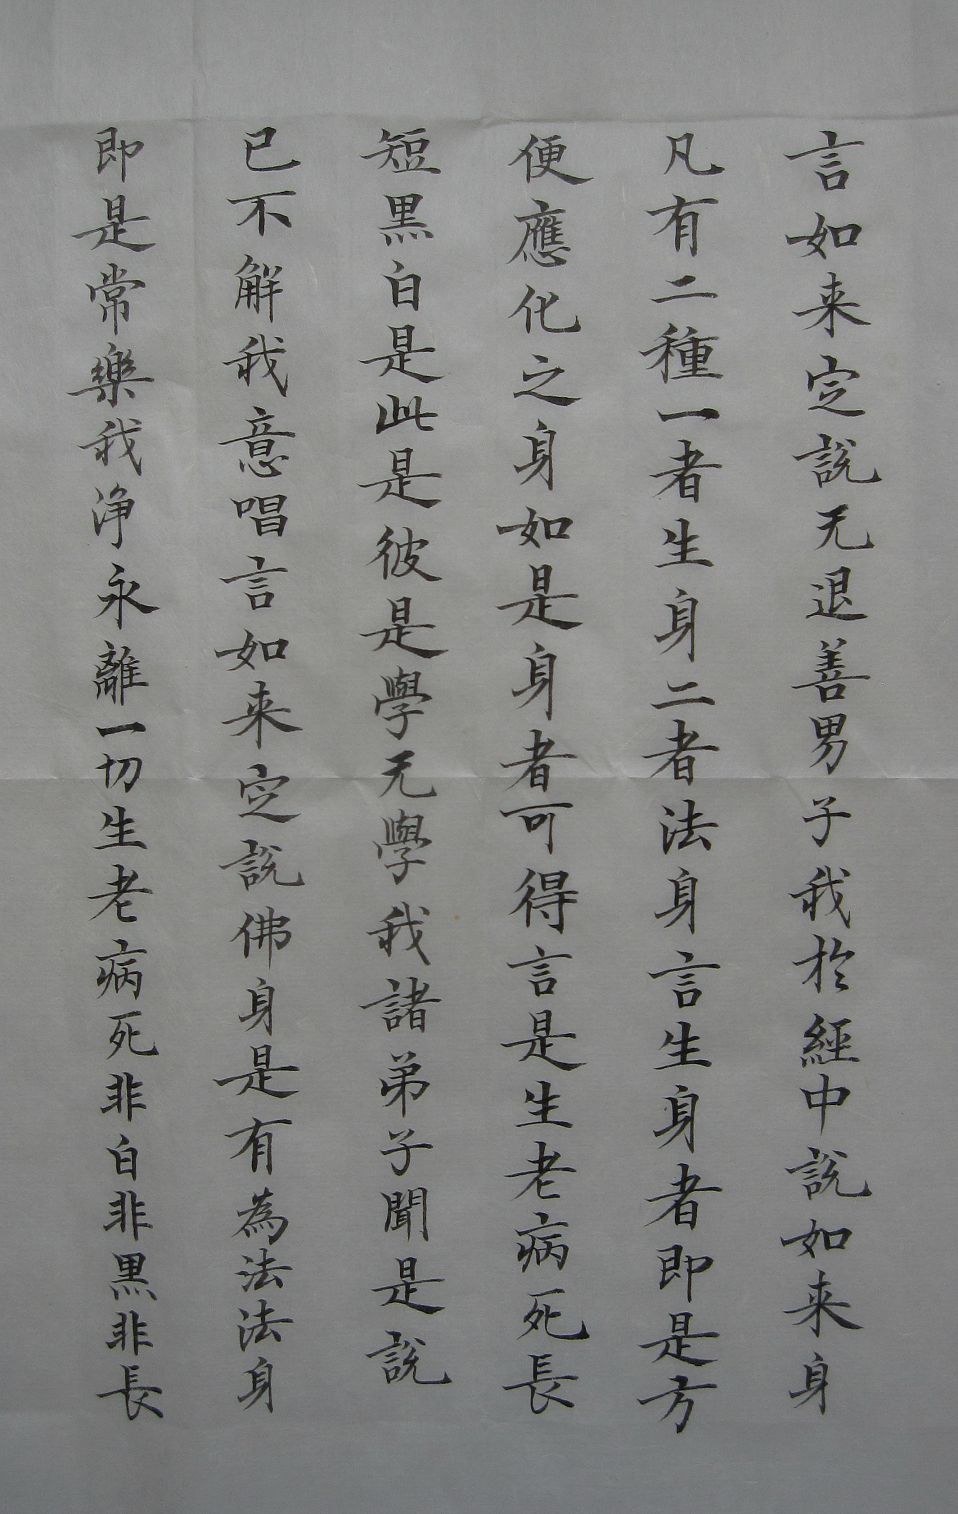 言如来定說无退善男子我於經中說如来身
凡有二種一者生身二者法身言生身者即是方
便應化之身如是身者可得言是生老病死長
短黑白是此是彼是學无學我諸弟子聞是說
已不解我意唱言如来定說佛身是有為法法身
即是常樂我淨永離一切生老病死非白非黑非長